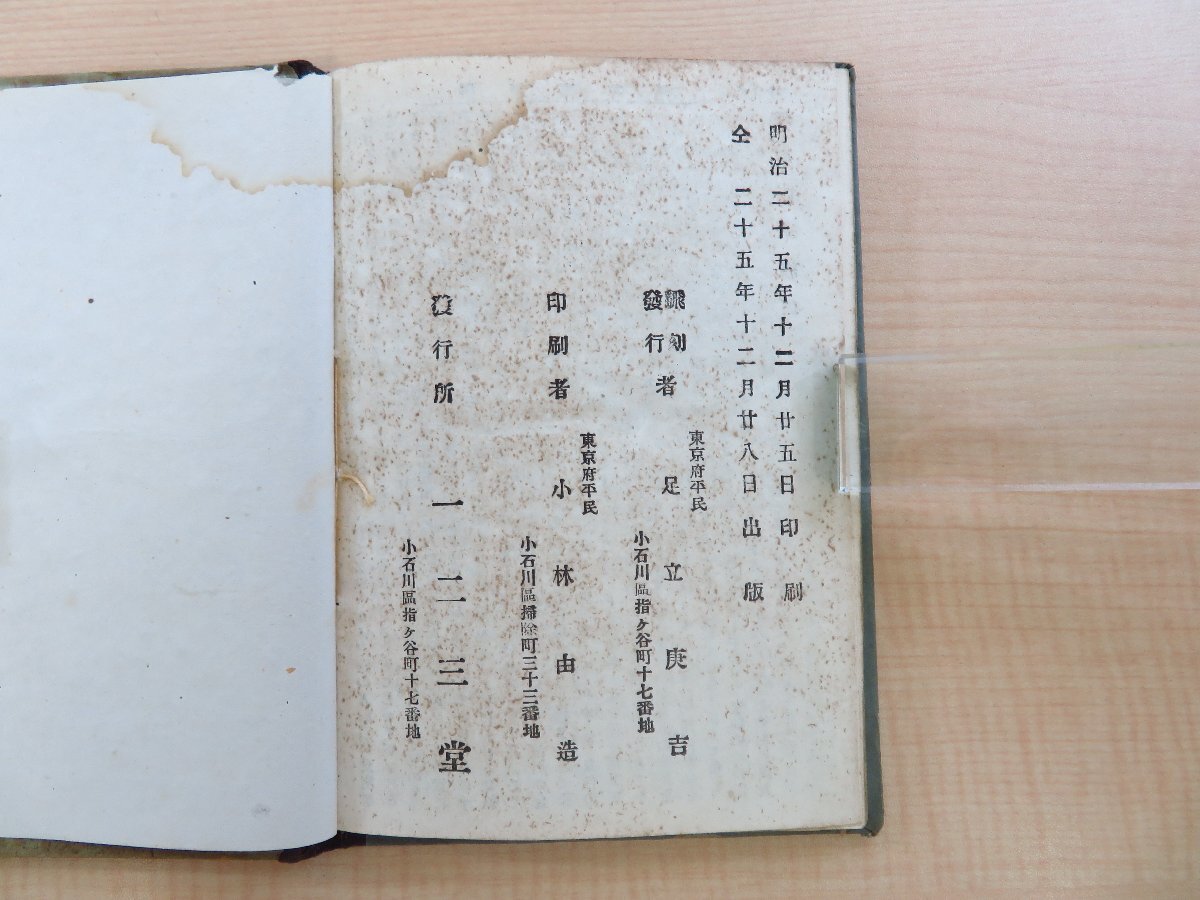 明治二十五年十二月廿五日印刷
仝二十五年十二月廿八日出版
飜刻
發行者
東京府平民
足立庚吉
小石川區指ヶ谷町十七番地
印刷者
東京府平民
小林由造
小石川區掃除町三十三番地
發行所
一二三堂
小石川區指ヶ谷町十七番地